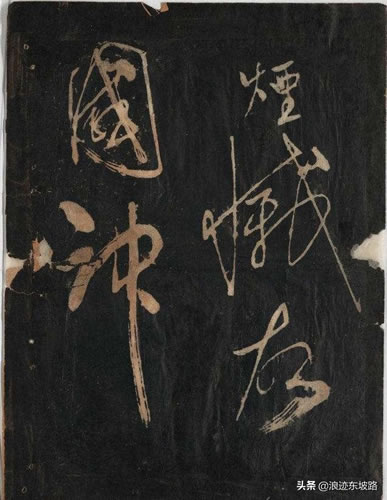 煙存
國神
头条 @浪迹东坡路